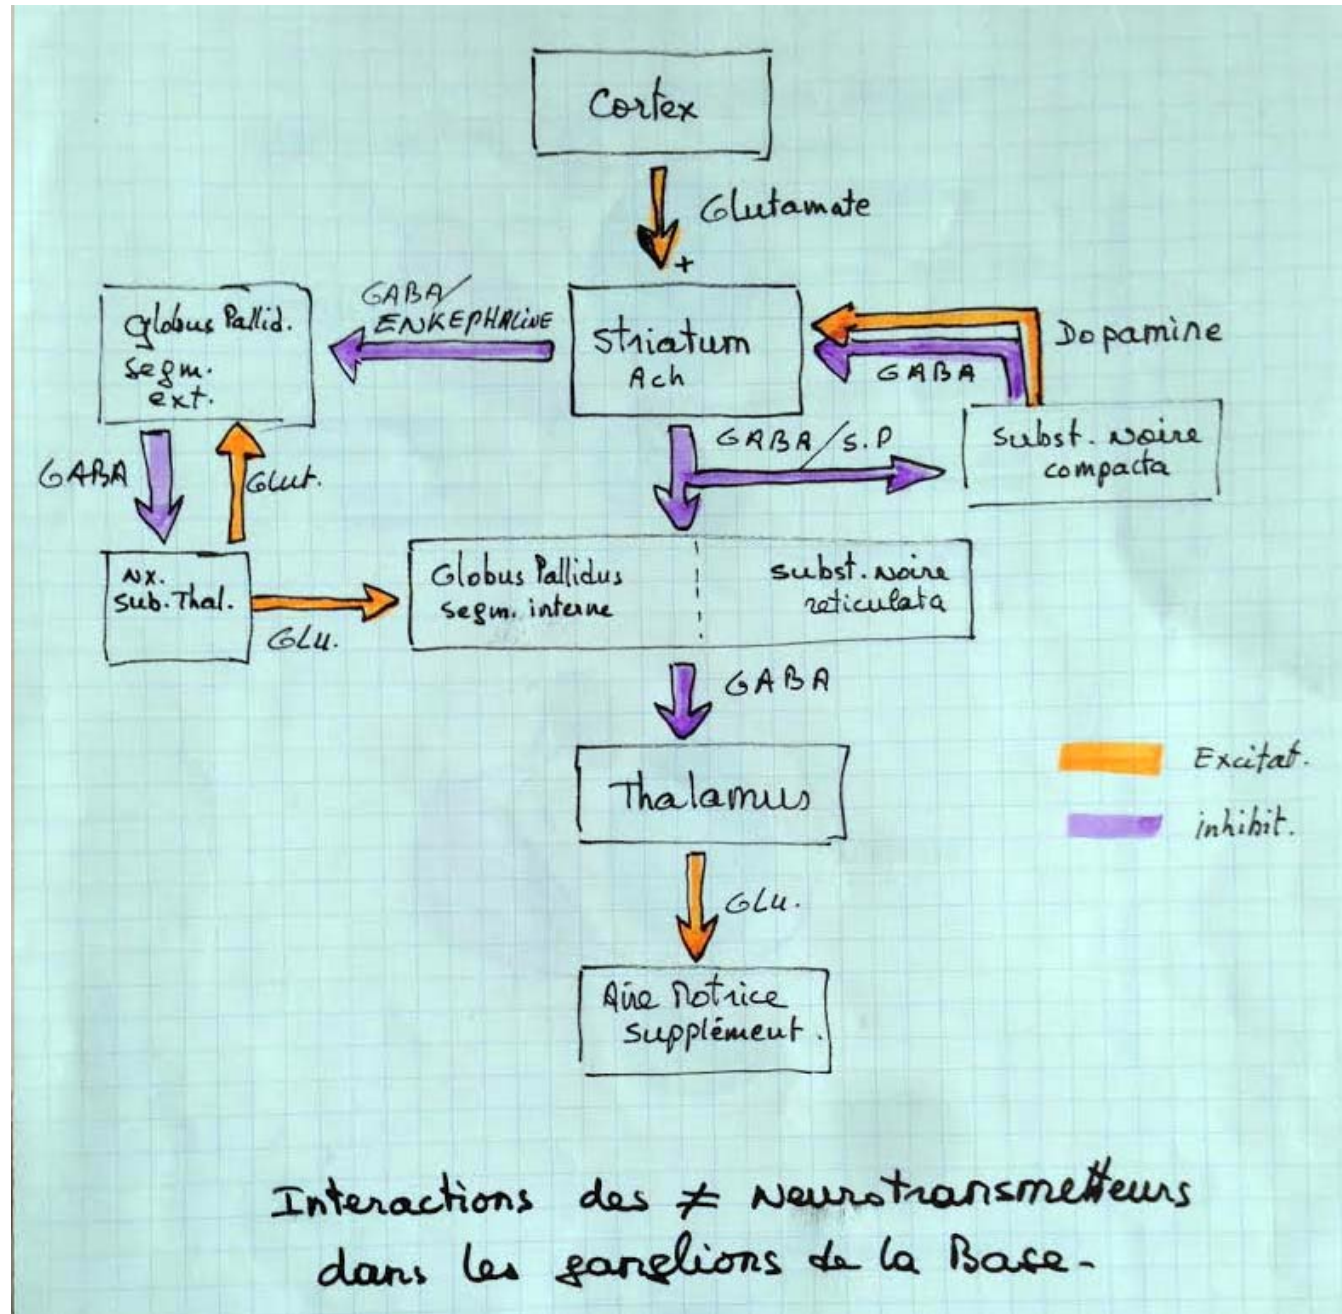 Cortex
Glutamate
+
GABA/
ENKEPHALINE
Globus Pallid.
segm.
ext.
Striatum
Ach
Dopamine
GABA
Subst. Noire
compacta
GABA/S.P
GABA
Glut.
Nx.
Sub.Thal.
GLU.
Globus Pallidus
segm. interne
subst. Noire
reticulata
GABA
Thalamus
Excitat.
inhibit.
GLU.
Aire Motrice
supplément.
Interactions des ≠ Neurotransmetteurs
dans les ganglions de la Base-